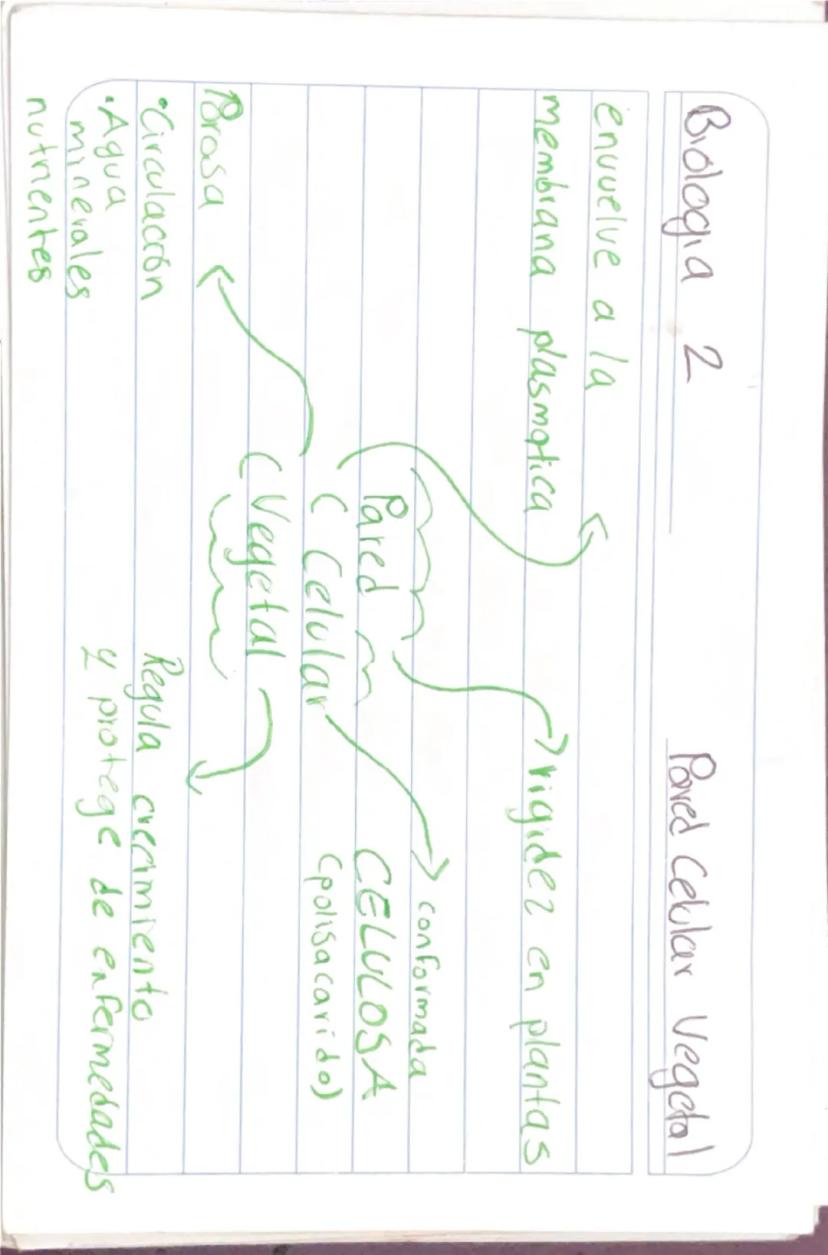 Biologia 2
Pared Celular Vegetal
envuelve a la
membrana plasmatica
rigidez en plantas
Pared
Celular
Vegetal
conformada
CELULOSA
(polisacarido)
Porosa
• Circulación
• Agua
minerales
nutrientes
Regula crecimiento
y protege de enfermedades